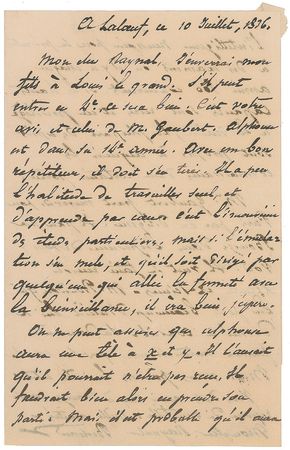 A Lalœuf, ce 10 Juillet, 1876.
Mon cher Raynal, J'enverrai mon
fils à Louis le grand. S'il peut
entrer en 4e, ce sera bien. C'est votre
avis, et celui de M. Gaubert. Alphonse
est dans sa 14e année. Avec un bon
répétiteur, il doit s'en tirer. Il a peu
l'habitude de travailler seul, et
d'apprendre par cœur. C'est l'inconvénient
des études particulières. Mais si l'émula-
tion s'en mêle, et qu'il soit dirigé par
quelqu'un qui allie la fermeté avec
la bienveillance, il ira bien, j'espère.
On ne peut assurer que Alphonse
aura une tête à x et y. Il l'aurait
qu'il pourrait n'être pas reçu. Il
faudrait bien alors en prendre son
parti. Mais il est probable qu'il aura